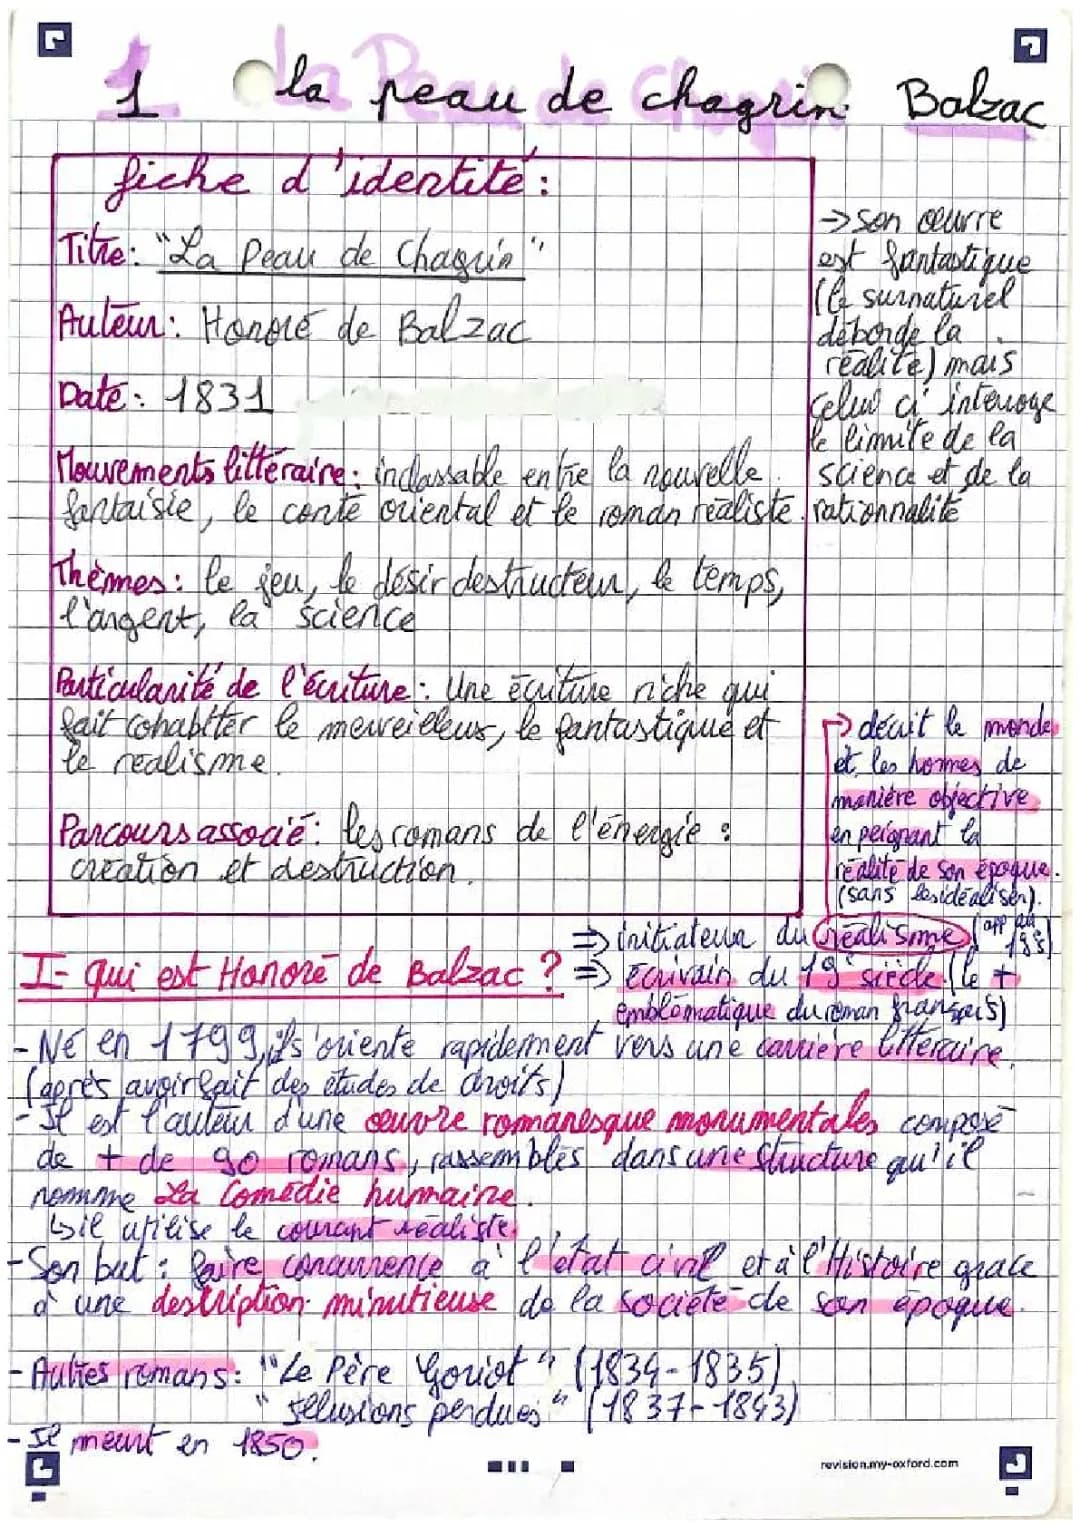 1 la peau de chagrin Balzac
fiche d'identité :
Titre : "La Peau de Chagrin"
Auteur : Honoré de Balzac
Date : 1831
Mouvements littéraire : inclassable entre la nouvelle
fantaisie, le conte oriental et le roman réaliste.
Thèmes : le jeu, le désir destructeur, le temps,
l'argent, la science
Particularité de l'écriture : Une écriture riche qui
fait cohabiter le merveilleux, le fantastique et
le réalisme.
Parcours associé : les romans de l'énergie :
création et destruction.
→ son œuvre
est fantastique
(le surnaturel
déborde la
réalité) mais
celui ci interroge
le limite de la
science et de la
rationnalité
→ décrit le monde
et les hommes de
manière objective
en peignant la
réalité de son époque.
(sans les idéaliser).
⇒ initiateur du réalisme
I- qui est Honoré de Balzac ? ⇒ Ecrivain du 19e siècle (le +
emblématique du roman français)
- Né en 1799, il s'oriente rapidement vers une carrière littéraire.
(après avoir fait des études de droits)
- Il est l'auteur d'une œuvre romanesque monumentales composé
de + de 90 romans, rassemblés dans une structure qu'il
nomme La Comédie humaine.
↳ il utilise le courant réaliste.
- Son but : faire concurrence à l'état civil et à l'Histoire grace
à une description minutieuse de la société de son époque.
- Autres romans : "Le Père Goriot" (1834-1835)
"Illusions perdues" (1837-1843)
- Il meurt en 1850.
revision.my-oxford.com